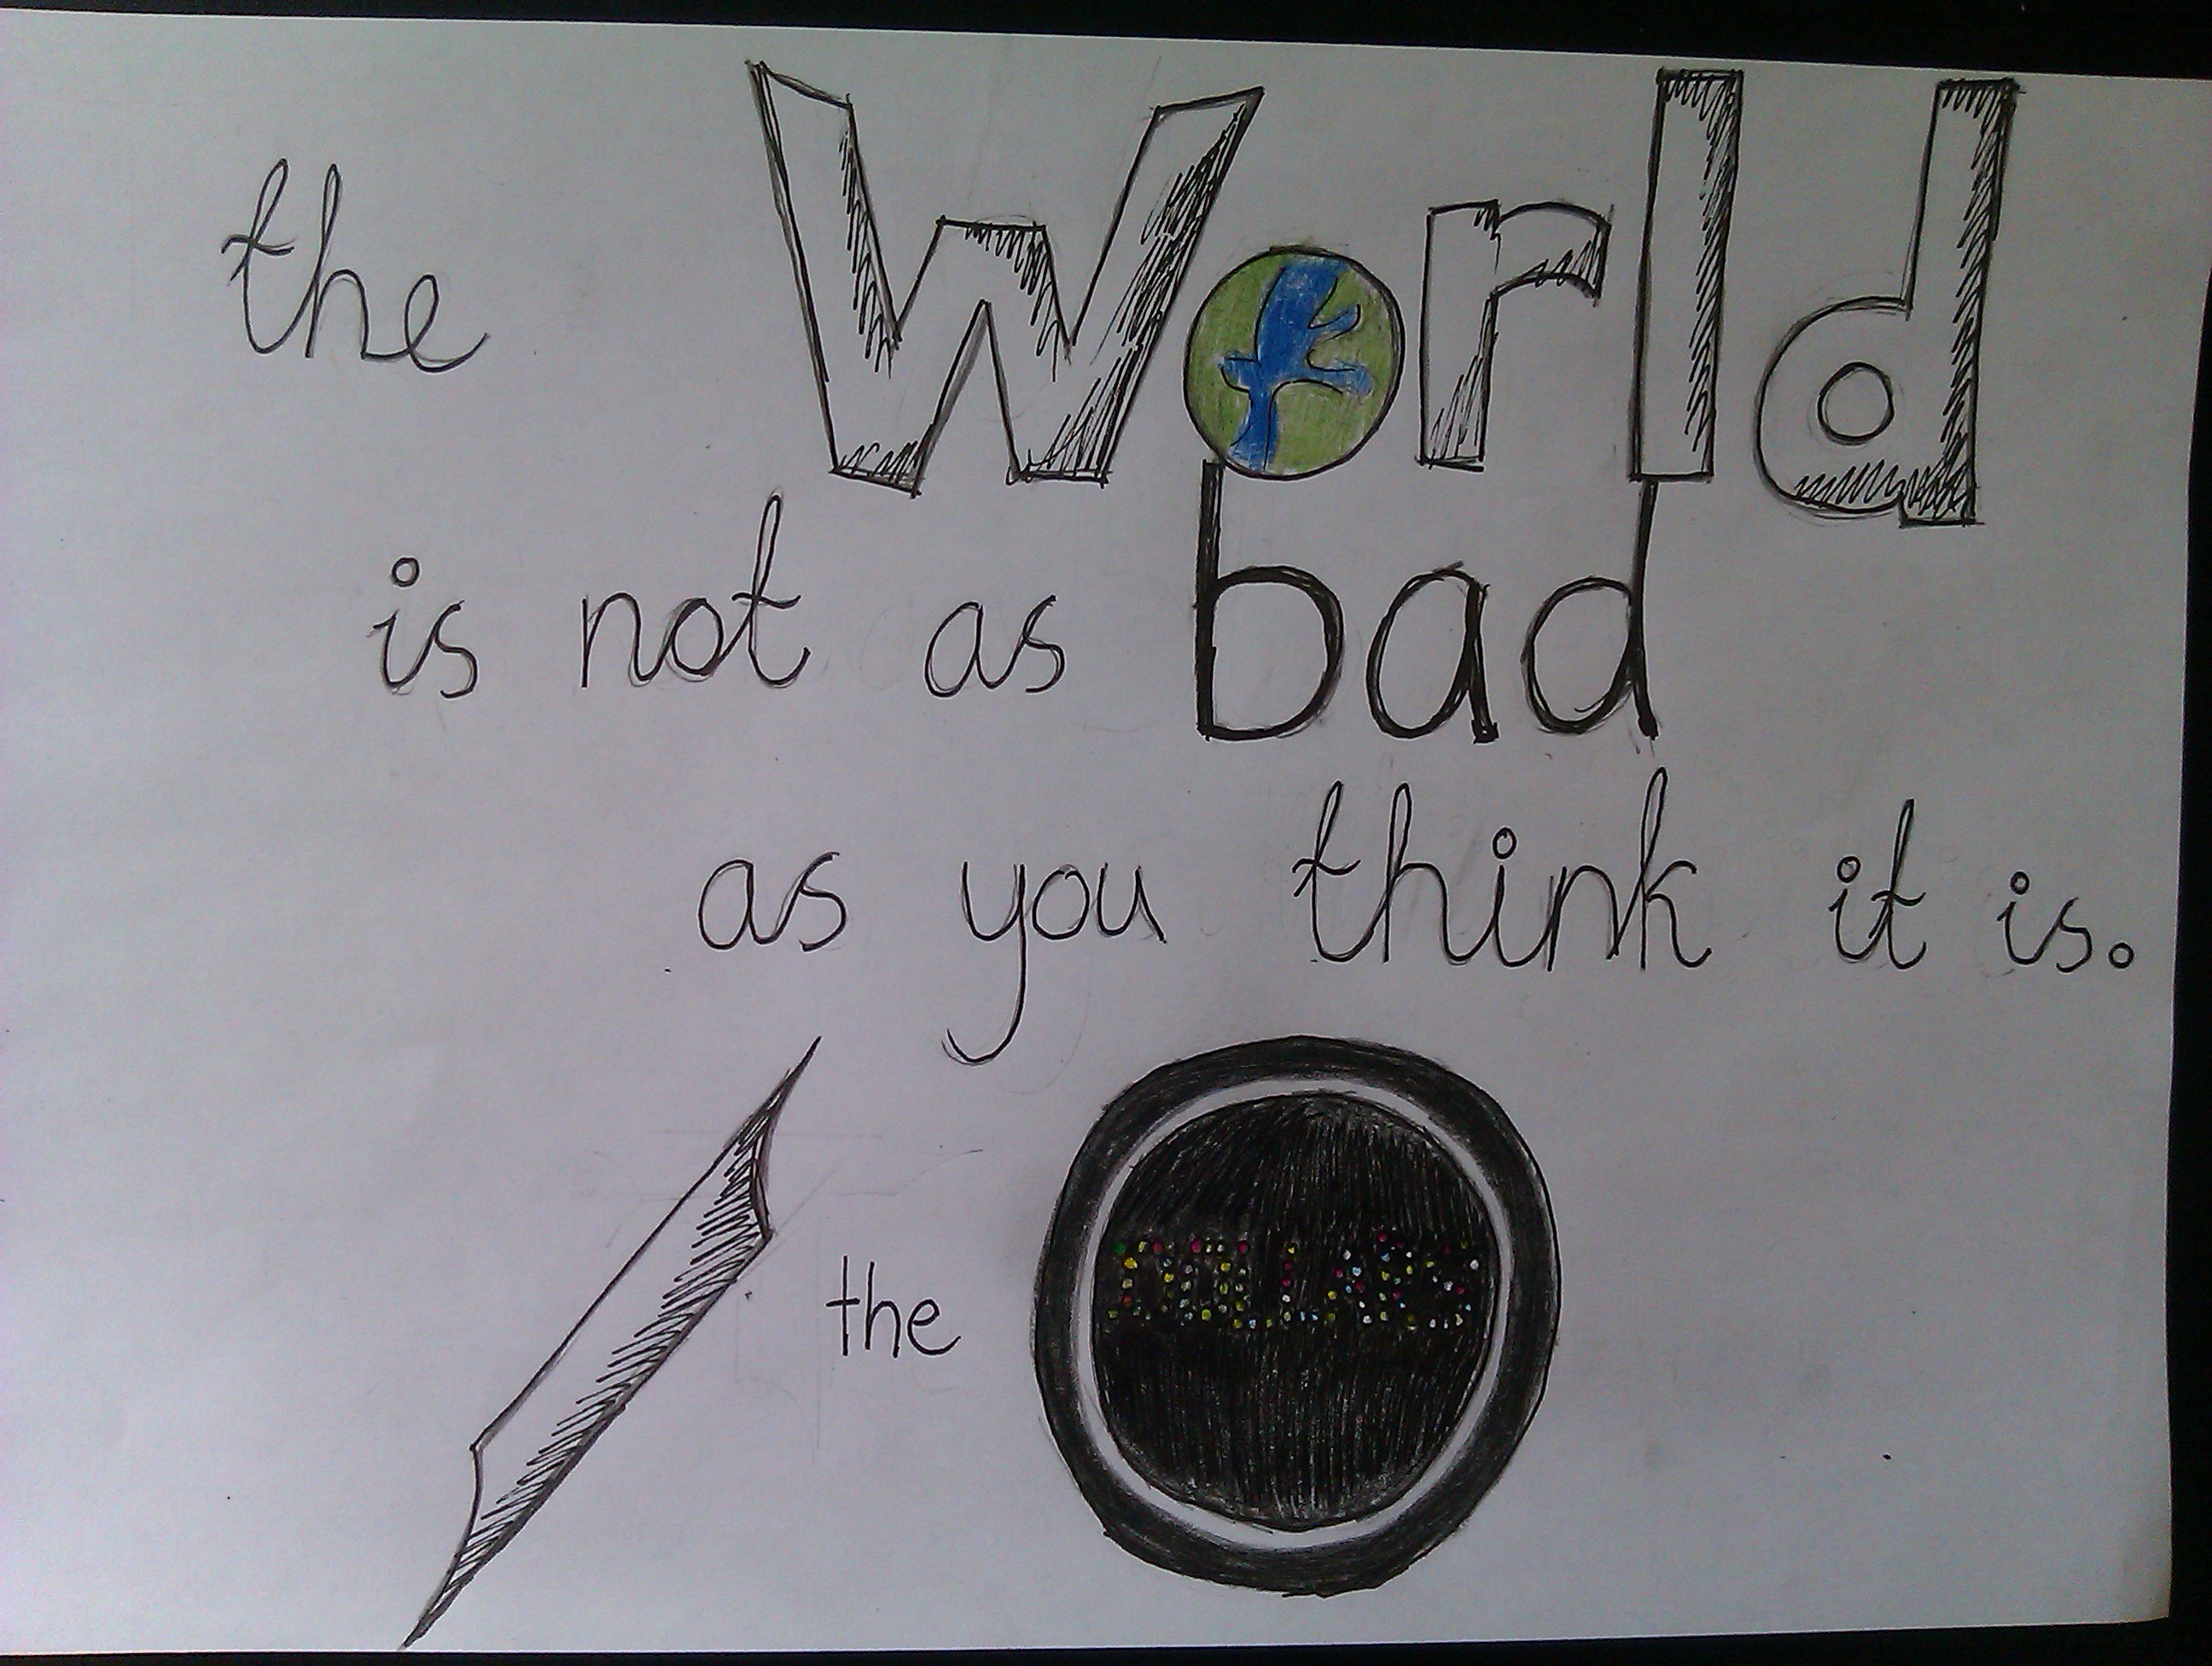 the World
is not as bad
as you think it is.
the DOLLARS